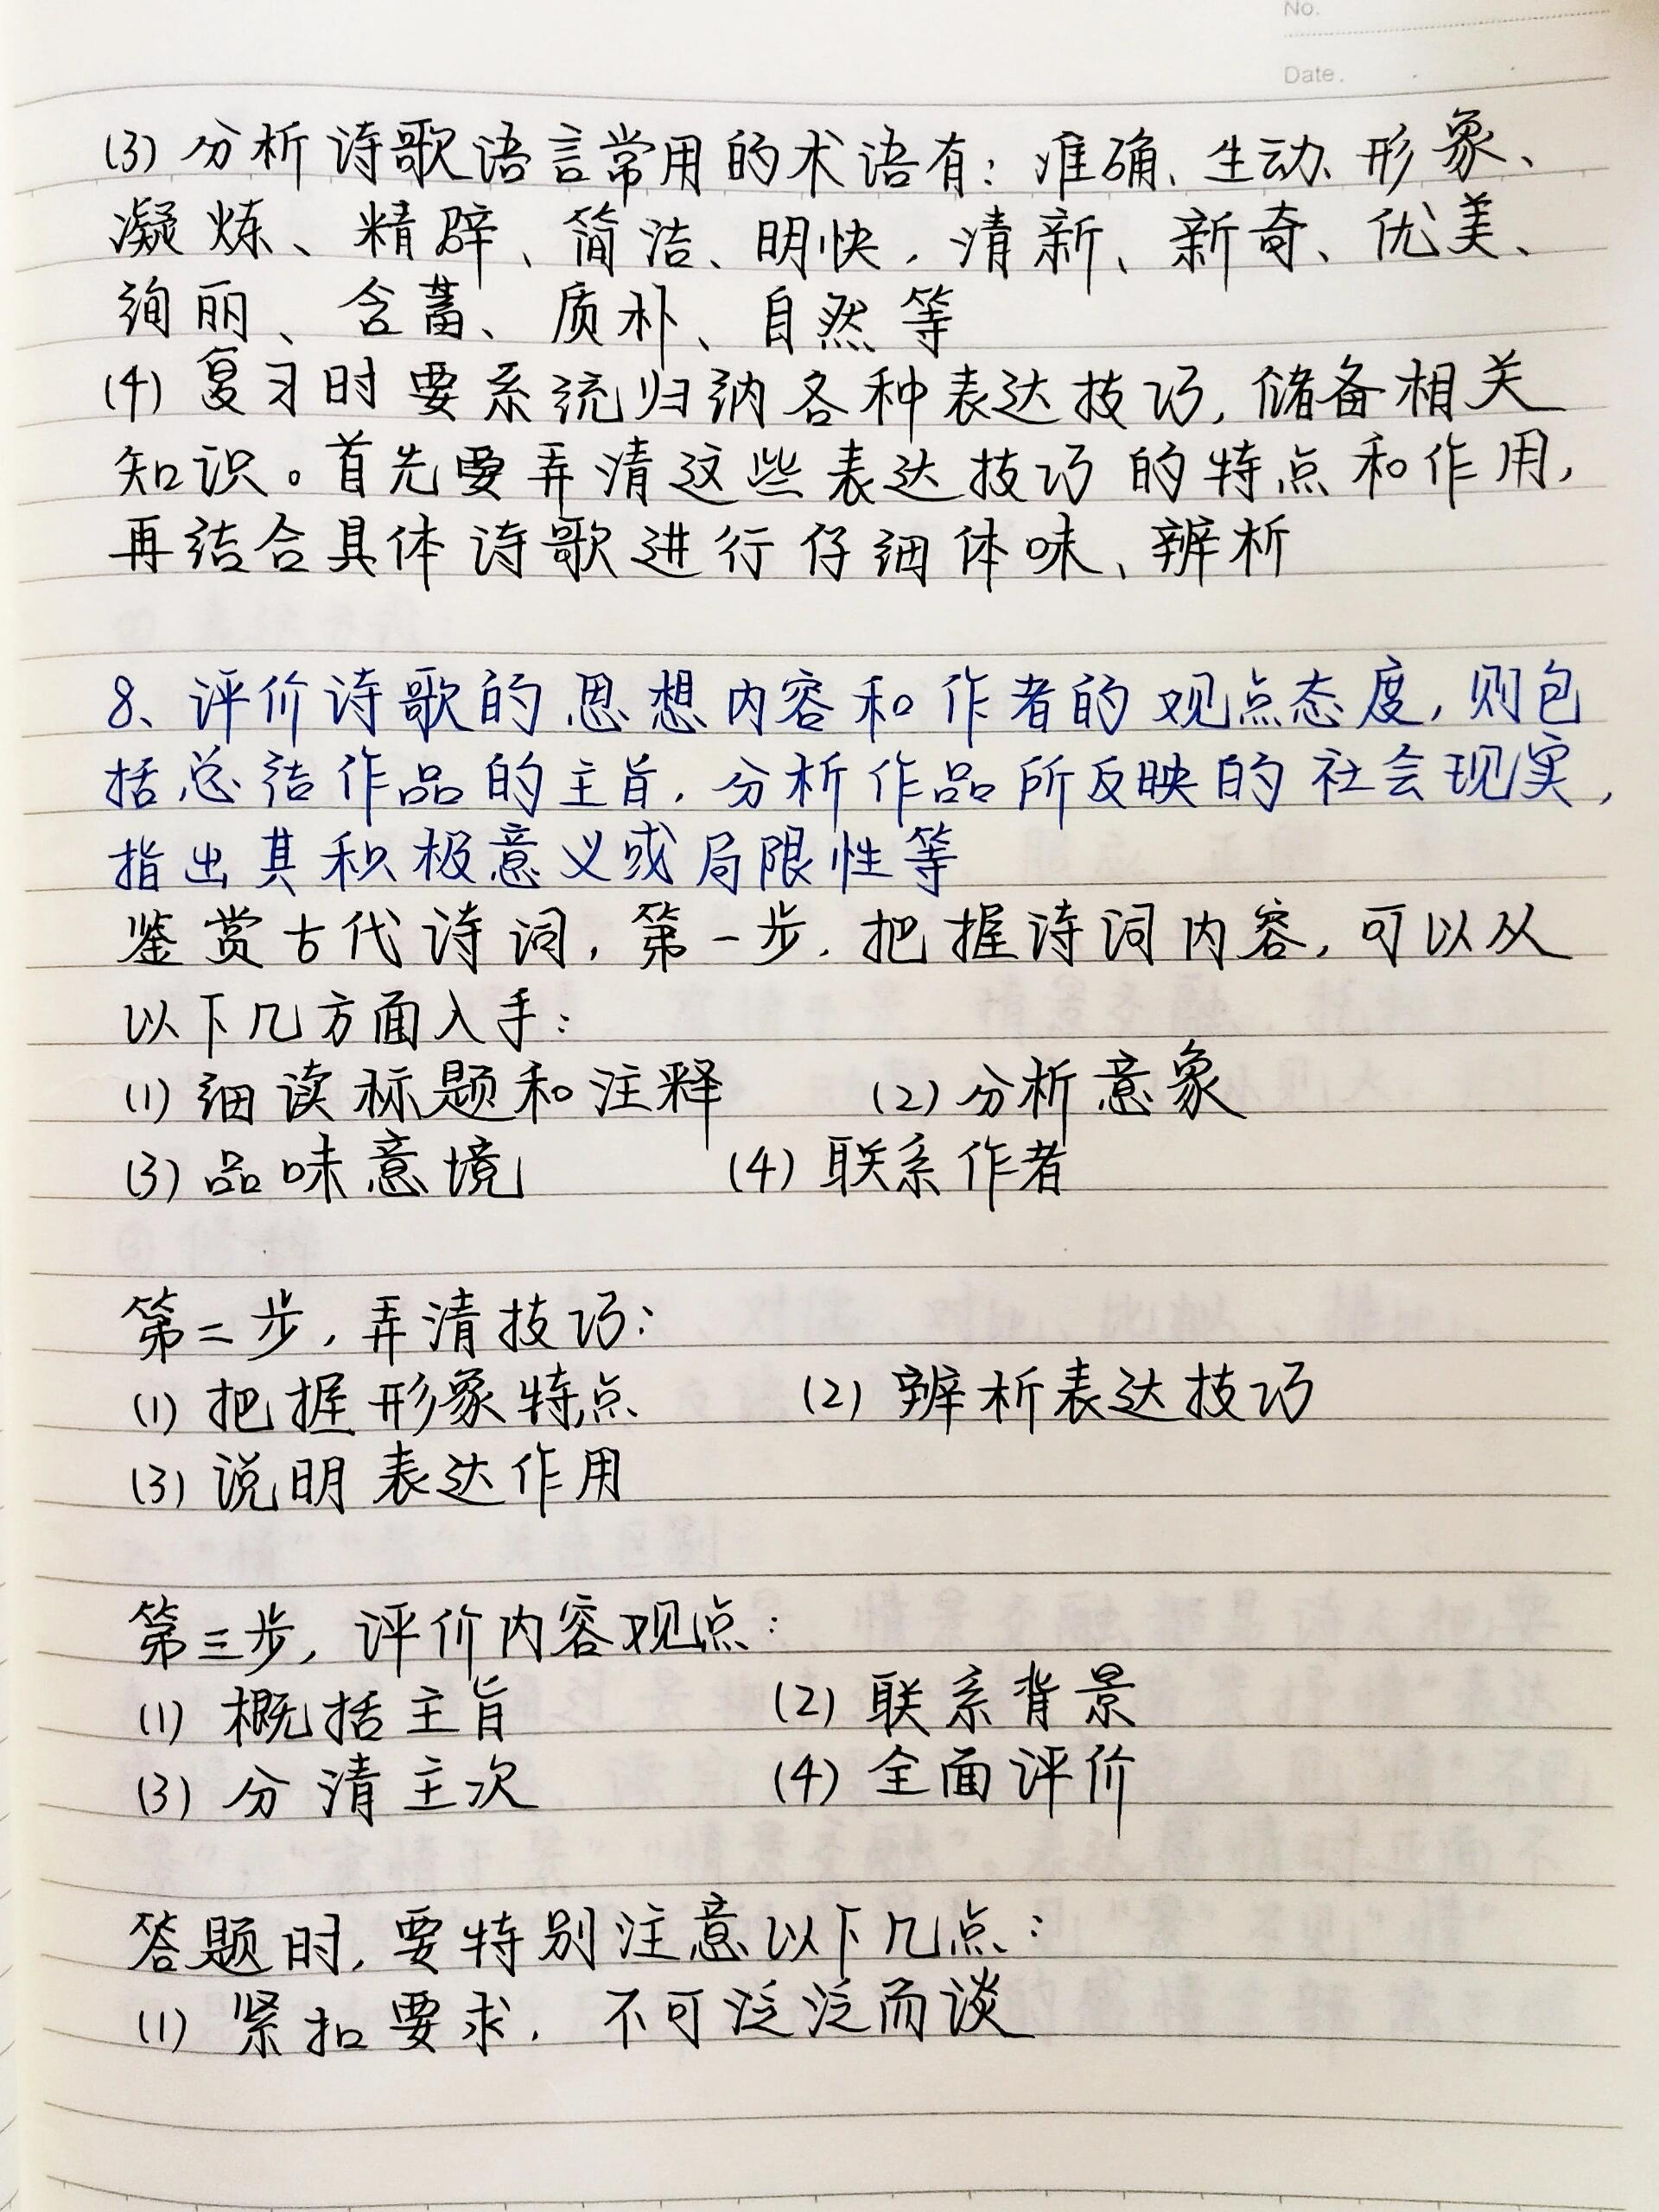 No.
Date.
(3) 分析诗歌语言常用的术语有：准确、生动、形象、
凝炼、精辟、简洁、明快，清新、新奇、优美、
绚丽、含蓄、质朴、自然等
(4) 复习时要系统归纳各种表达技巧，储备相关
知识。首先要弄清这些表达技巧的特点和作用，
再结合具体诗歌进行仔细体味、辨析
8、评价诗歌的思想内容和作者的观点态度，则包
括总结作品的主旨，分析作品所反映的社会现实，
指出其积极意义或局限性等
鉴赏古代诗词，第一步，把握诗词内容，可以从
以下几方面入手：
(1) 细读标题和注释 (2) 分析意象
(3) 品味意境 (4) 联系作者
第二步，弄清技巧：
(1) 把握形象特点 (2) 辨析表达技巧
(3) 说明表达作用
第三步，评价内容观点：
(1) 概括主旨 (2) 联系背景
(3) 分清主次 (4) 全面评价
答题时，要特别注意以下几点：
(1) 紧扣要求，不可泛泛而谈